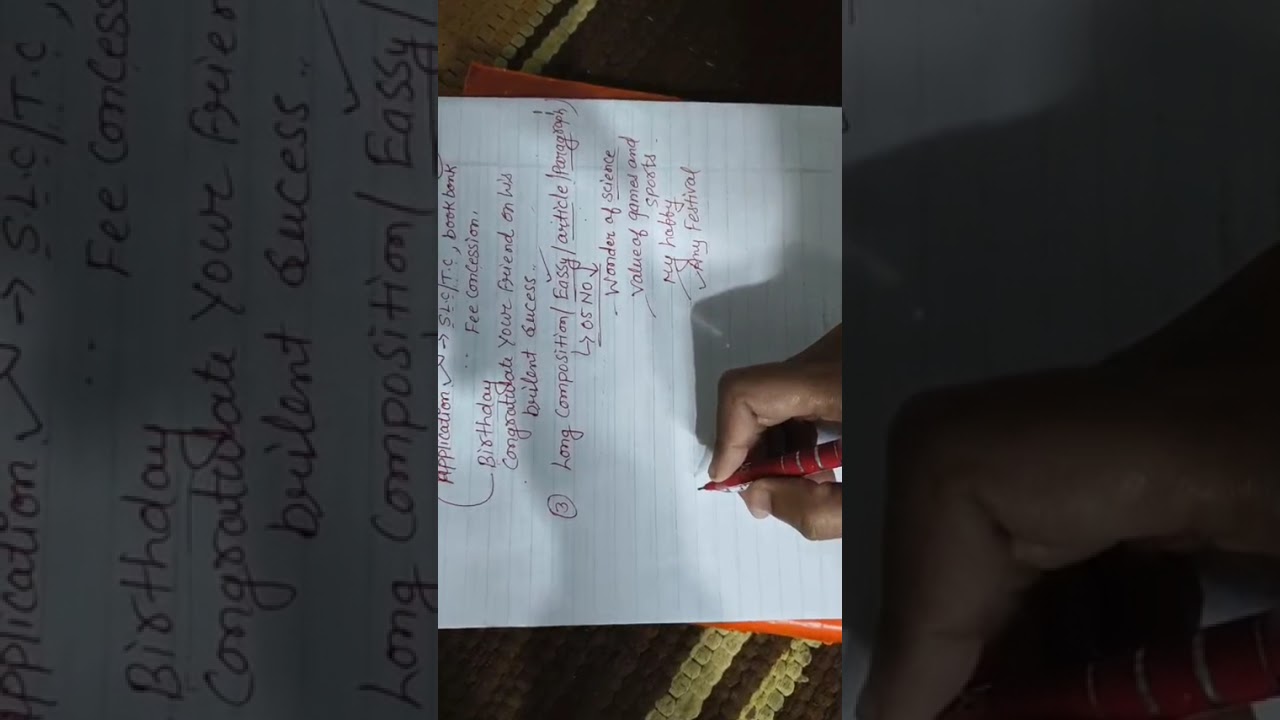 (Application ✓ → S.L.C/T.C, book bank
Fee Concession.
Birthday
Congratulate Your Friend on his
brilent Sucess..
③ Long Composition/ Eassy/ article/Paragraph)
↳ 05 No ↓
- Wonder of science
Value of games and
sports.
My hobby
Any Festival